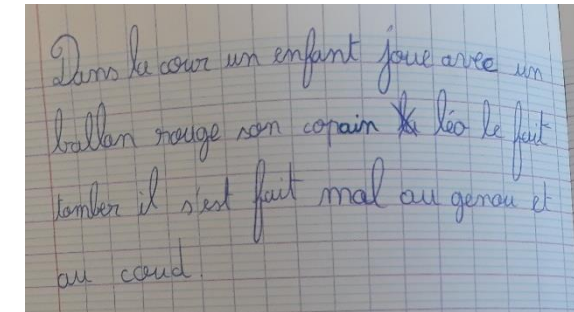 Dans la cour un enfant joue avec un
ballon rouge son copain léo le fait
tomber il s'est fait mal au genou et
au coud.